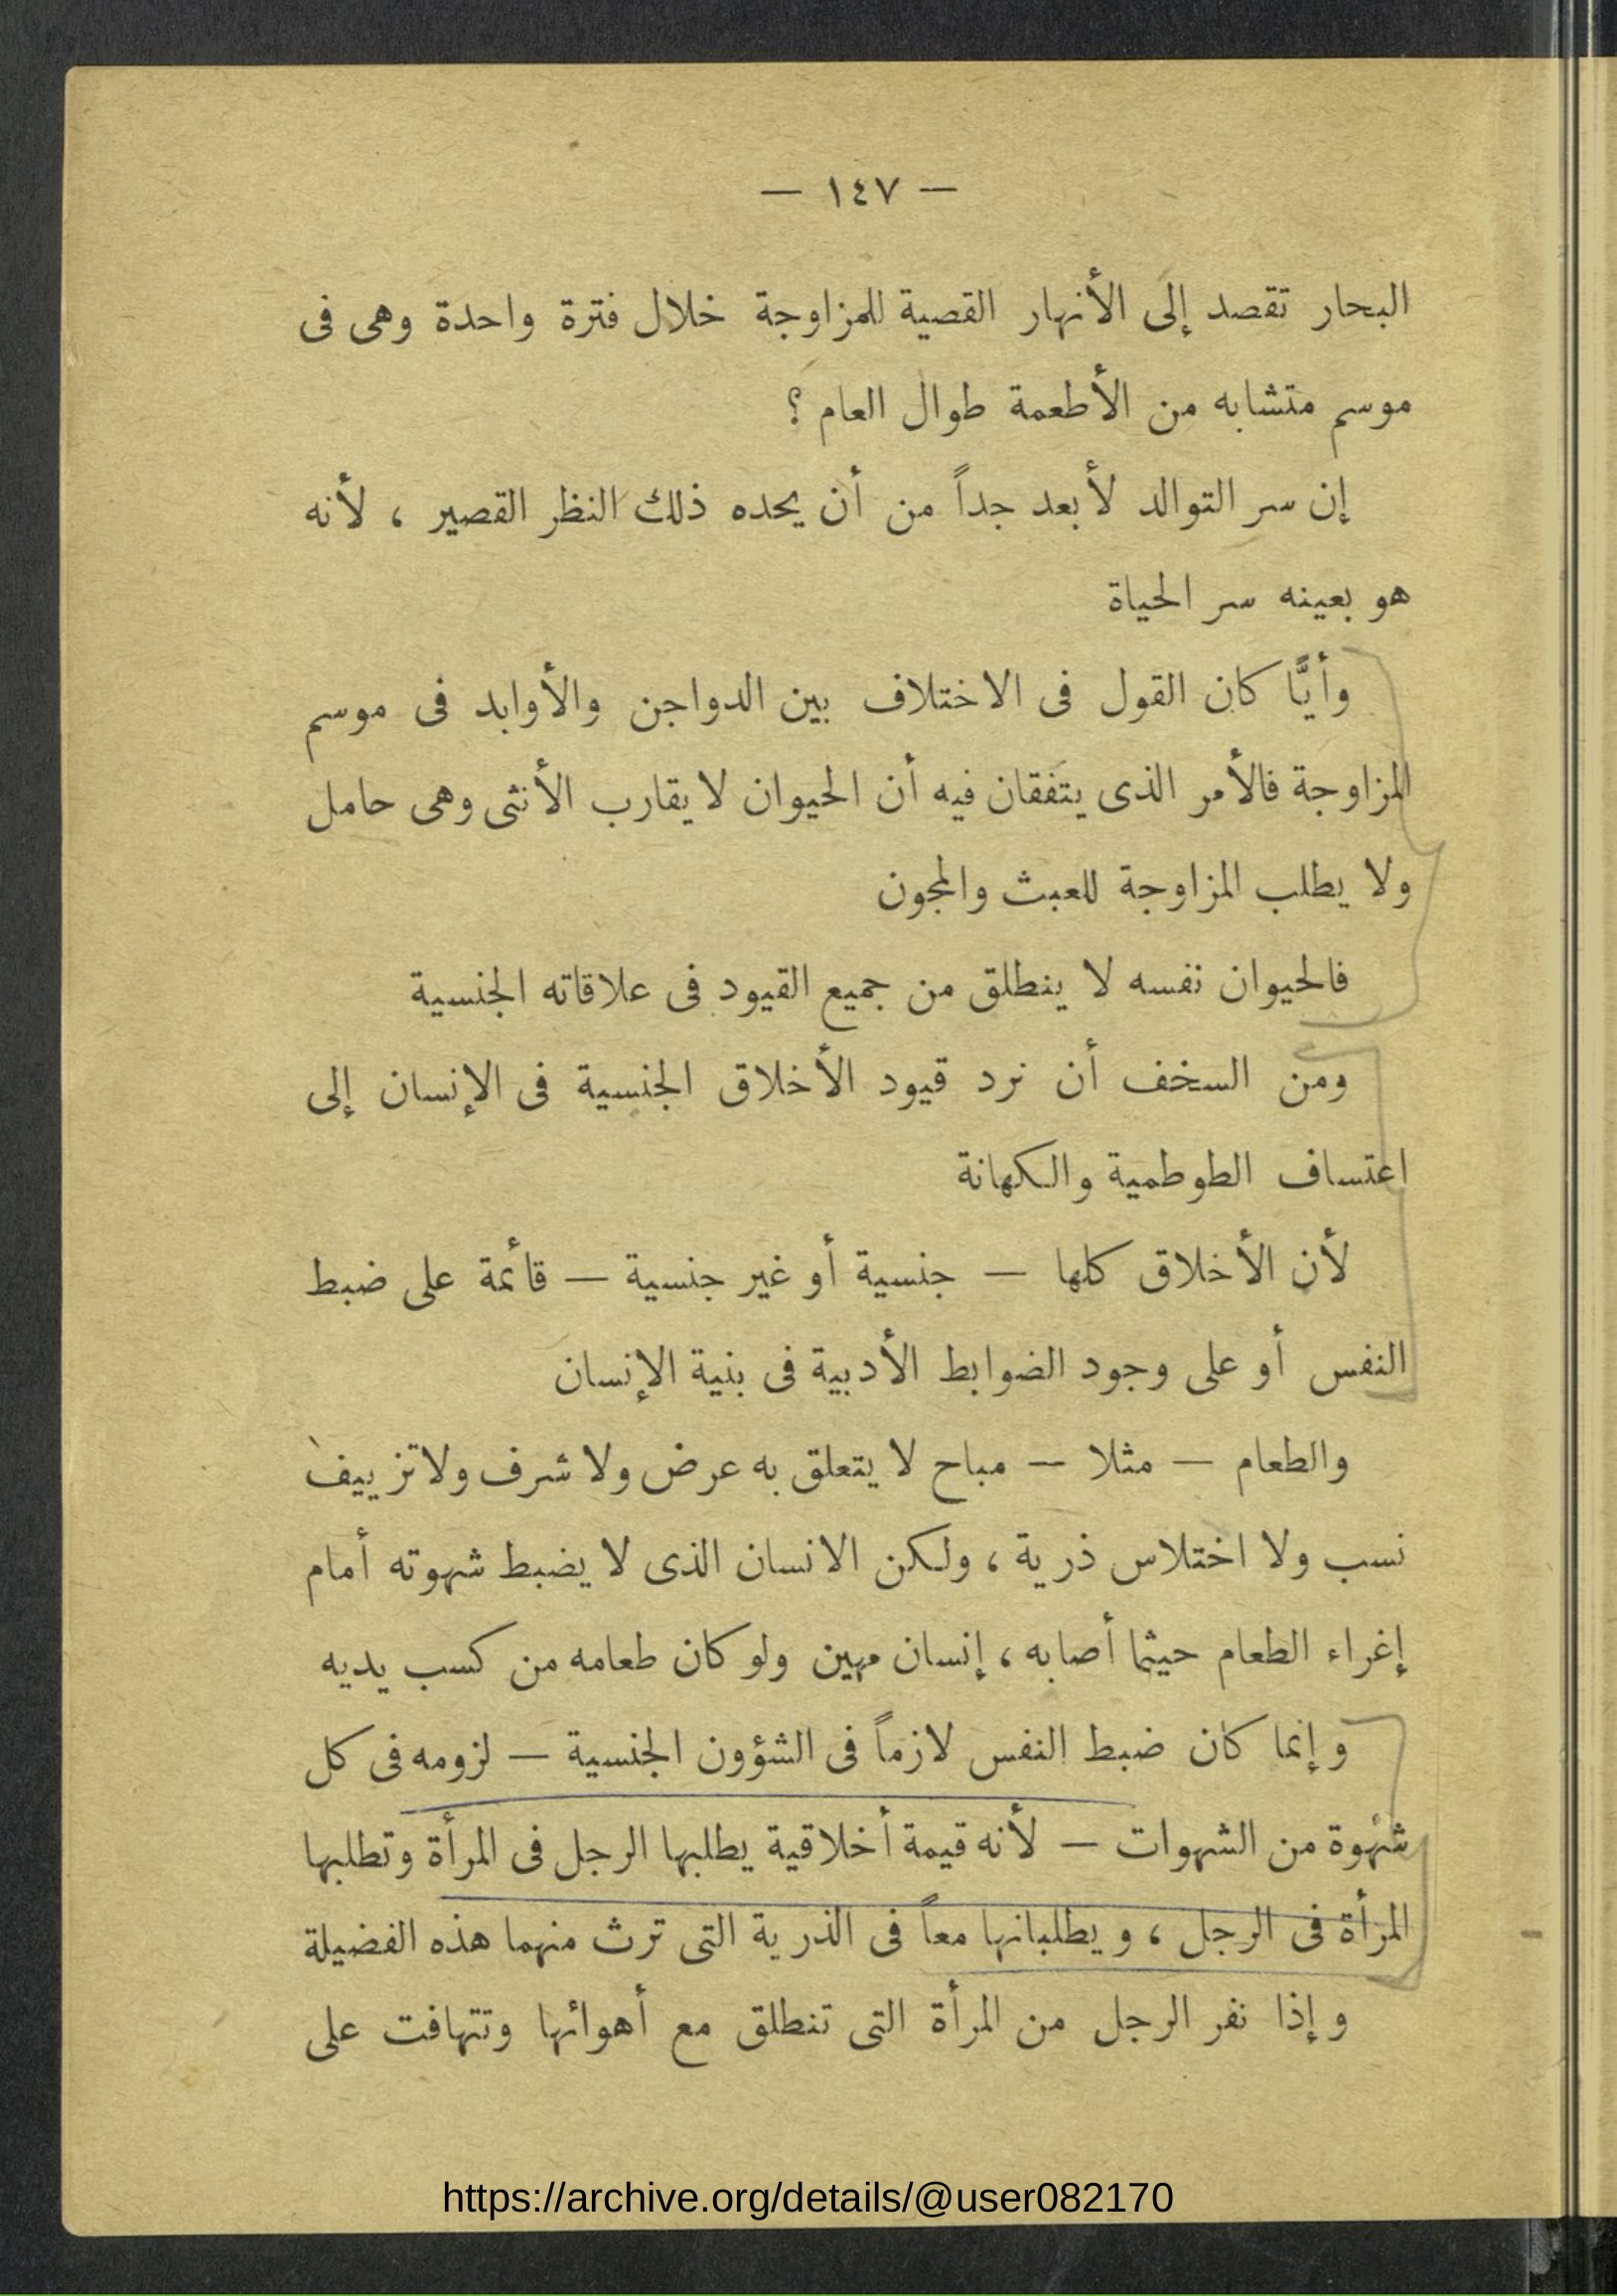 — ١٤٧ —
البحار تقصد إلى الأنهار القصية للمزاوجة خلال فترة واحدة وهى فى
موسم متشابه من الأطعمة طوال العام ؟
إن سر التوالد لأبعد جداً من أن يحده ذلك النظر القصير ، لأنه
هو بعينه سر الحياة
وأيًّا كان القول فى الاختلاف بين الدواجن والأوابد فى موسم
المزاوجة فالأمر الذى يتفقان فيه أن الحيوان لا يقارب الأنثى وهى حامل
ولا يطلب المزاوجة للعبث والمجون
فالحيوان نفسه لا ينطلق من جميع القيود فى علاقاته الجنسية
ومن السخف أن نرد قيود الأخلاق الجنسية فى الإنسان إلى
اعتساف الطوطمية والكهانة
لأن الأخلاق كلها — جنسية أو غير جنسية — قائمة على ضبط
النفس أو على وجود الضوابط الأدبية فى بنية الإنسان
والطعام — مثلا — مباح لا يتعلق به عرض ولا شرف ولا تزييف
نسب ولا اختلاس ذرية ، ولكن الانسان الذى لا يضبط شهوته أمام
إغراء الطعام حيثما أصابه ، إنسان مهين ولو كان طعامه من كسب يديه
وإنما كان ضبط النفس لازماً فى الشؤون الجنسية — لزومه فى كل
شهوة من الشهوات — لأنه قيمة أخلاقية يطلبها الرجل فى المرأة وتطلبها
المرأة فى الرجل ، ويطلبانها معاً فى الذرية التى ترث منهما هذه الفضيلة
وإذا نفر الرجل من المرأة التى تنطلق مع أهوائها وتتهافت على
https://archive.org/details/@user082170